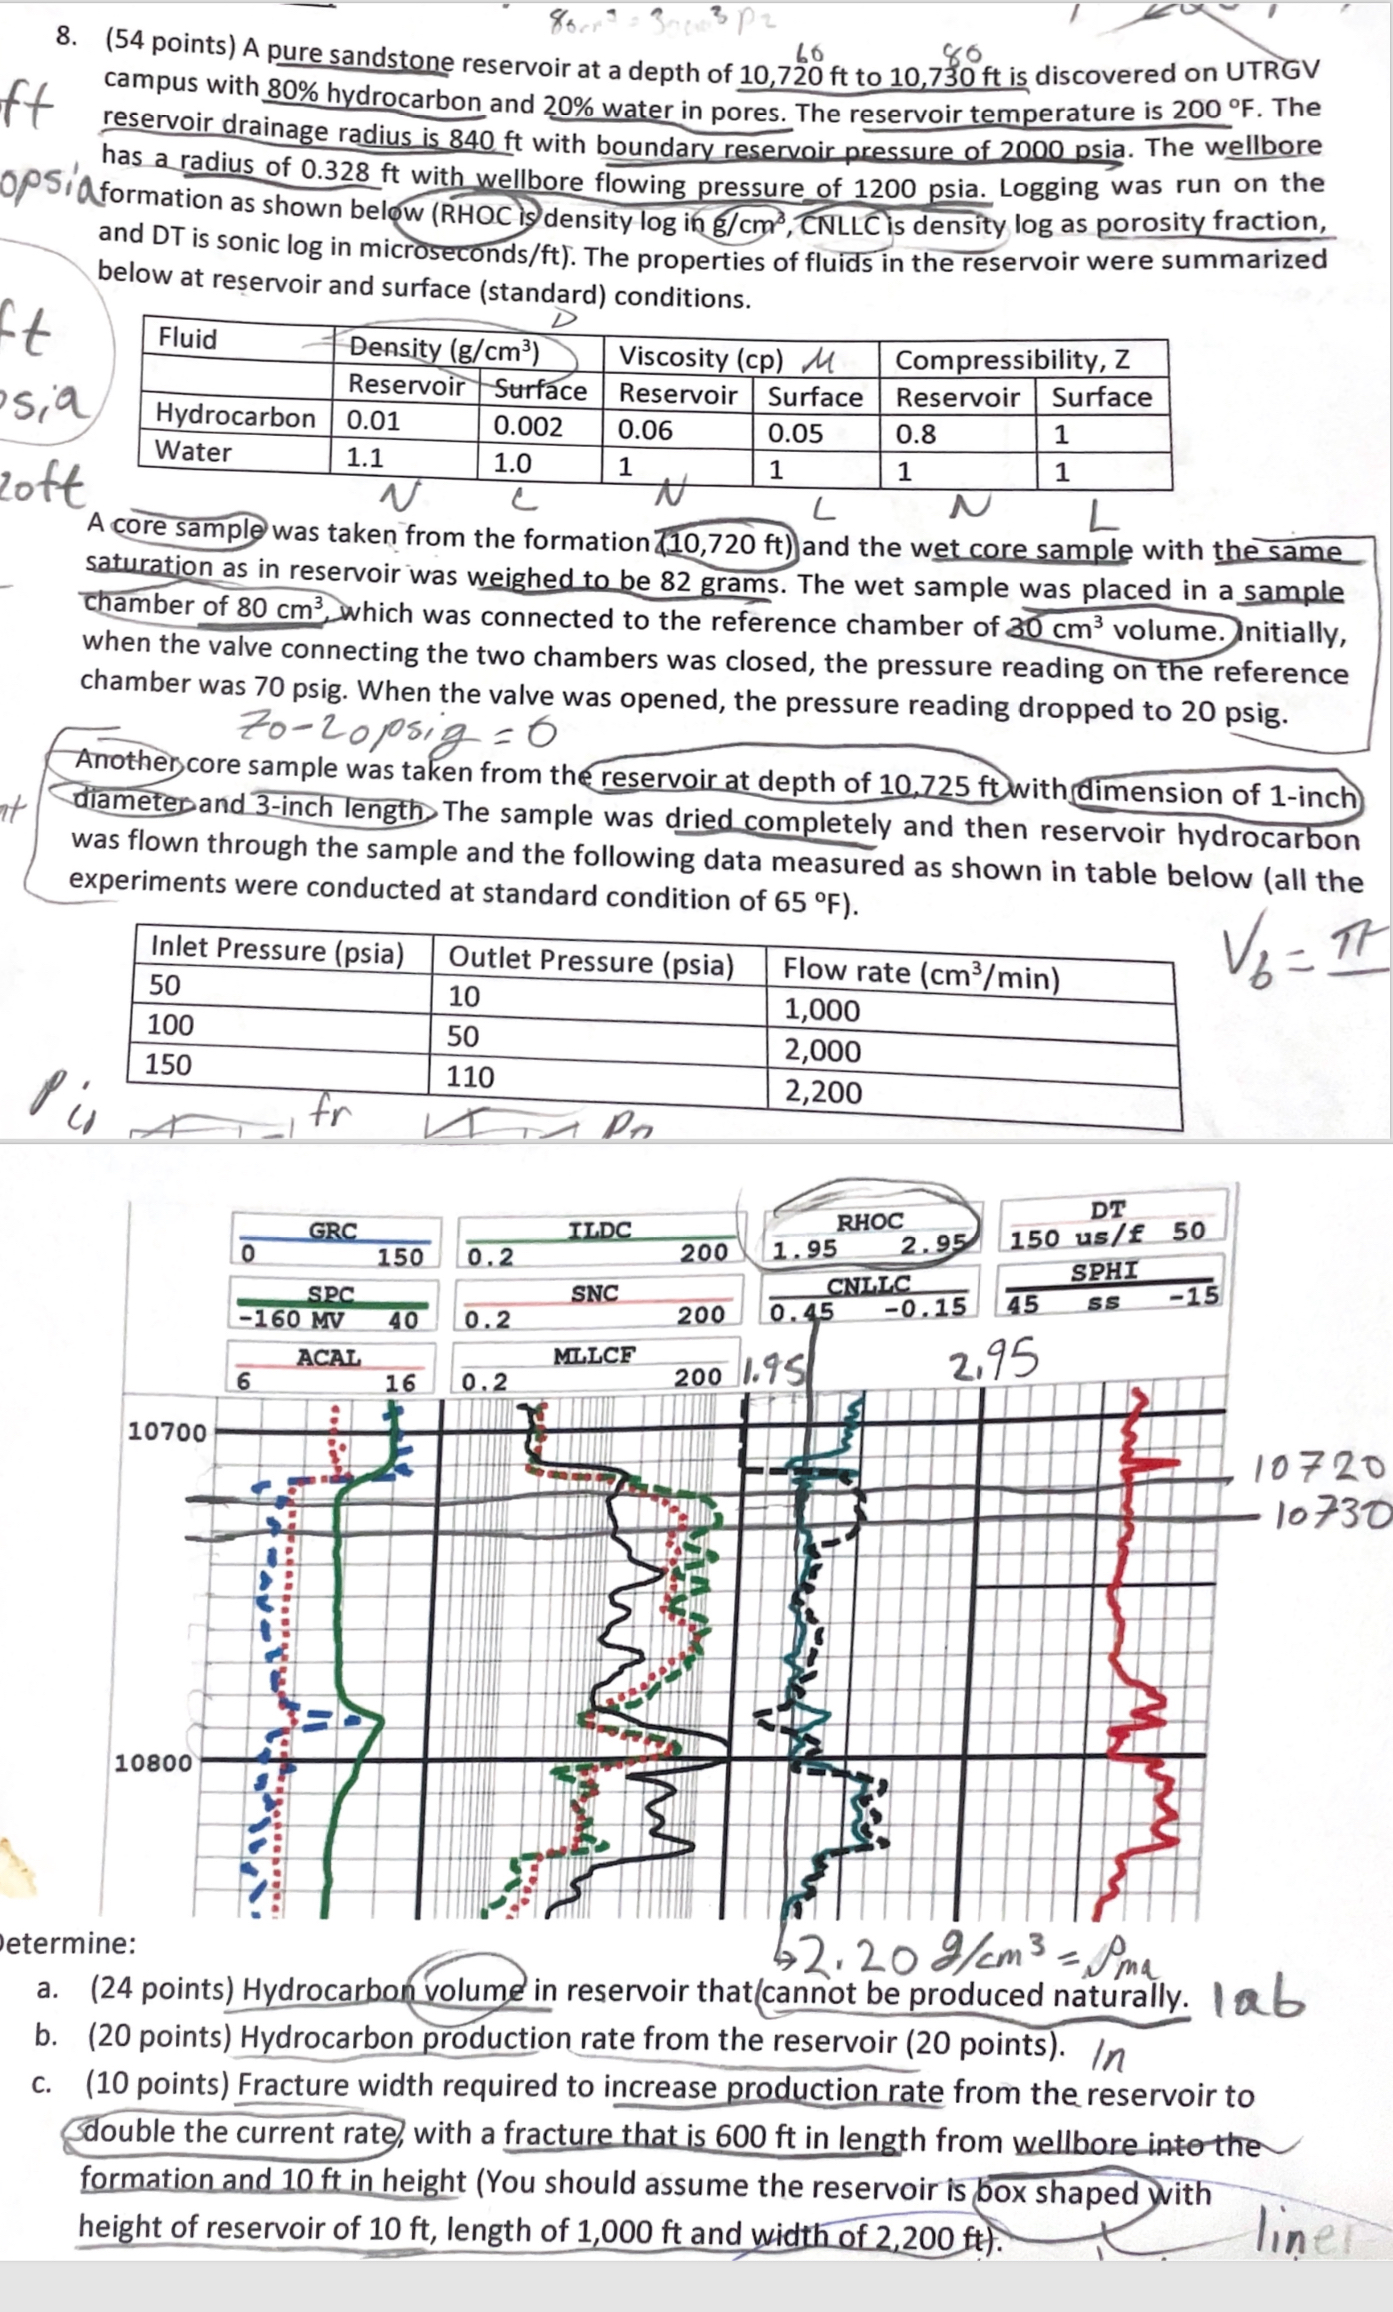 80 cm³ = 30 cm³ P2
8. (54 points) A pure sandstone reservoir at a depth of 10,720 ft to 10,730 ft is discovered on UTRGV
60 80
campus with 80% hydrocarbon and 20% water in pores. The reservoir temperature is 200 °F. The
ft
reservoir drainage radius is 840 ft with boundary reservoir pressure of 2000 psia. The wellbore
has a radius of 0.328 ft with wellbore flowing pressure of 1200 psia. Logging was run on the
opsia
formation as shown below (RHOC is density log in g/cm³, CNLLC is density log as porosity fraction,
and DT is sonic log in microseconds/ft). The properties of fluids in the reservoir were summarized
below at reservoir and surface (standard) conditions.
ft
D
Fluid Density (g/cm³) Viscosity (cp) M Compressibility, Z
Reservoir Surface Reservoir Surface Reservoir Surface
psia
Hydrocarbon 0.01 0.002 0.06 0.05 0.8 1
Water 1.1 1.0 1 1 1 1
20ft
N L N L N L
A core sample was taken from the formation (10,720 ft) and the wet core sample with the same
saturation as in reservoir was weighed to be 82 grams. The wet sample was placed in a sample
chamber of 80 cm³, which was connected to the reference chamber of 30 cm³ volume. Initially,
when the valve connecting the two chambers was closed, the pressure reading on the reference
chamber was 70 psig. When the valve was opened, the pressure reading dropped to 20 psig.
70-20psig = 6
Another core sample was taken from the reservoir at depth of 10,725 ft with dimension of 1-inch
diameter and 3-inch length. The sample was dried completely and then reservoir hydrocarbon
was flown through the sample and the following data measured as shown in table below (all the
experiments were conducted at standard condition of 65 °F).
Vb = π
Inlet Pressure (psia) Outlet Pressure (psia) Flow rate (cm³/min)
50 10 1,000
100 50 2,000
150 110 2,200
fr
GRC ILDC RHOC DT
0 150 0.2 200 1.95 2.95 150 us/f 50
SPC SNC CNLLC SPHI
-160 MV 40 0.2 200 0.45 -0.15 45 ss -15
ACAL MLLCF
6 16 0.2 200 1.95 2.95
10700
10720
10730
10800
Determine:
2.20 g/cm³ = ρma
a. (24 points) Hydrocarbon volume in reservoir that cannot be produced naturally. lab
b. (20 points) Hydrocarbon production rate from the reservoir (20 points). ln
c. (10 points) Fracture width required to increase production rate from the reservoir to
double the current rate, with a fracture that is 600 ft in length from wellbore into the
formation and 10 ft in height (You should assume the reservoir is box shaped with
height of reservoir of 10 ft, length of 1,000 ft and width of 2,200 ft). liner